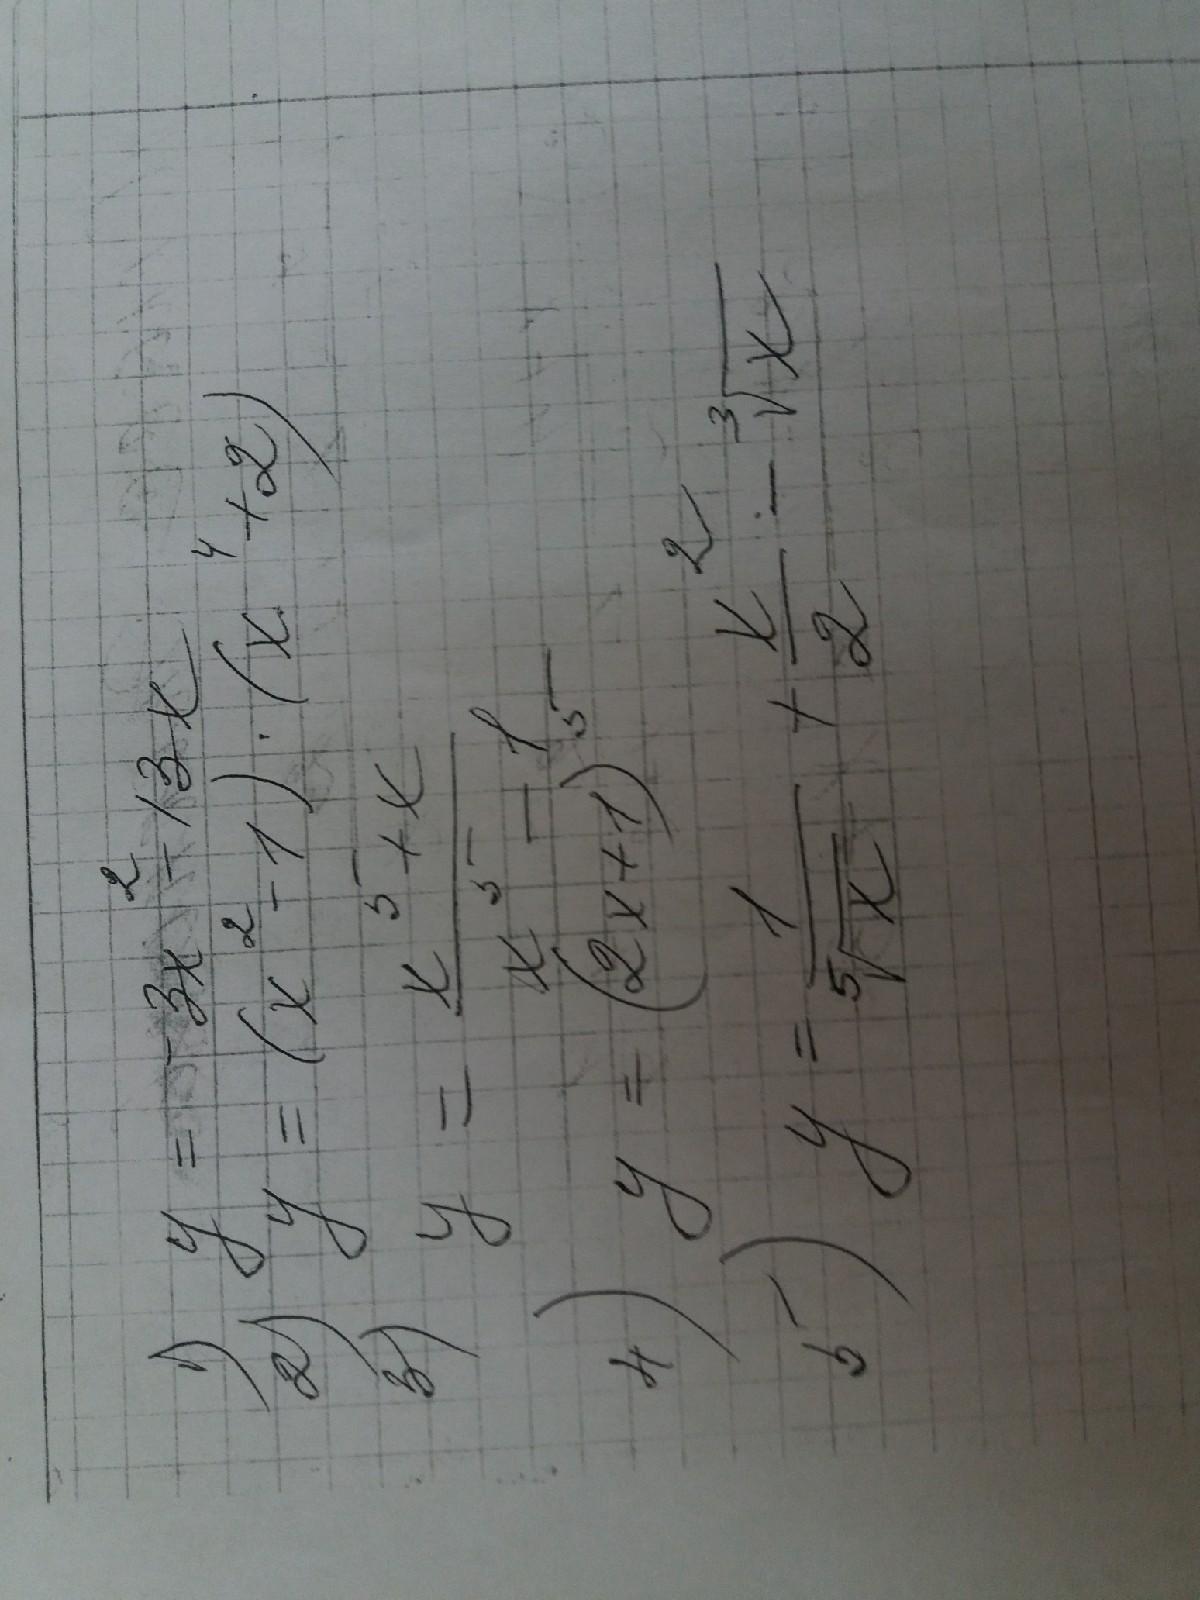 1) y = -3x² - 13x
2) y = (x² - 1) · (x⁴ + 2)
3) y = (x⁵ + x)/(x⁵ - 1)
4) y = (2x + 1)⁵
5) y = 1/⁵√x + x²/2 - ³√x